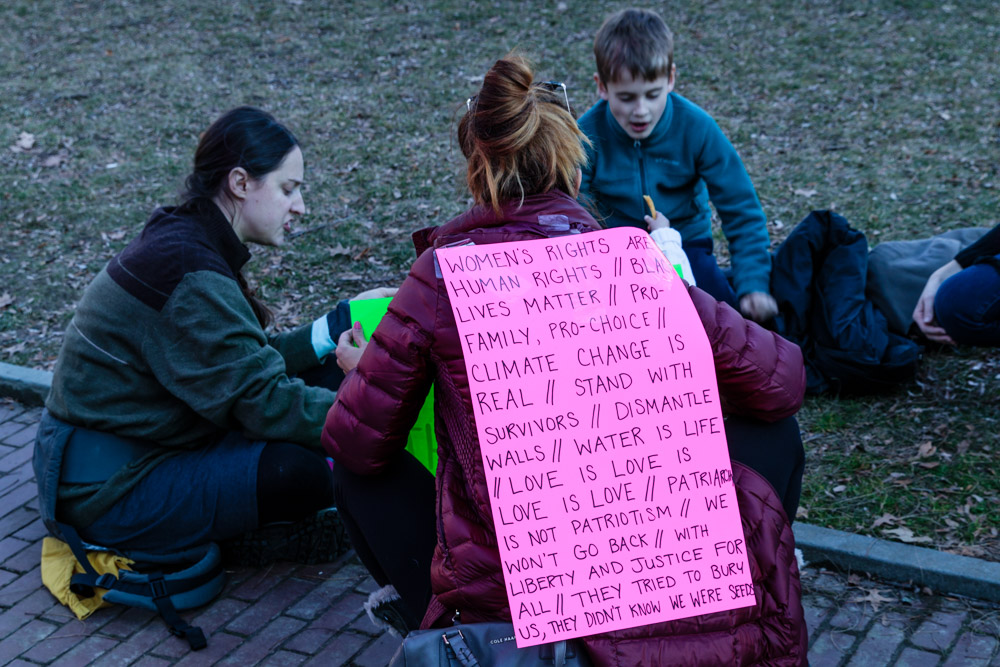 WOMEN'S RIGHTS ARE
HUMAN RIGHTS // BLA
LIVES MATTER // PRO-
FAMILY, PRO-CHOICE //
CLIMATE CHANGE IS
REAL // STAND WITH
SURVIVORS // DISMANTLE
WALLS // WATER IS LIFE
// LOVE IS LOVE IS
LOVE IS LOVE // PATRIARCH
IS NOT PATRIOTISM // WE
WON'T GO BACK // WITH
LIBERTY AND JUSTICE FOR
ALL // THEY TRIED TO BURY
US, THEY DIDN'T KNOW WE WERE SEEDS
COLE HAAN